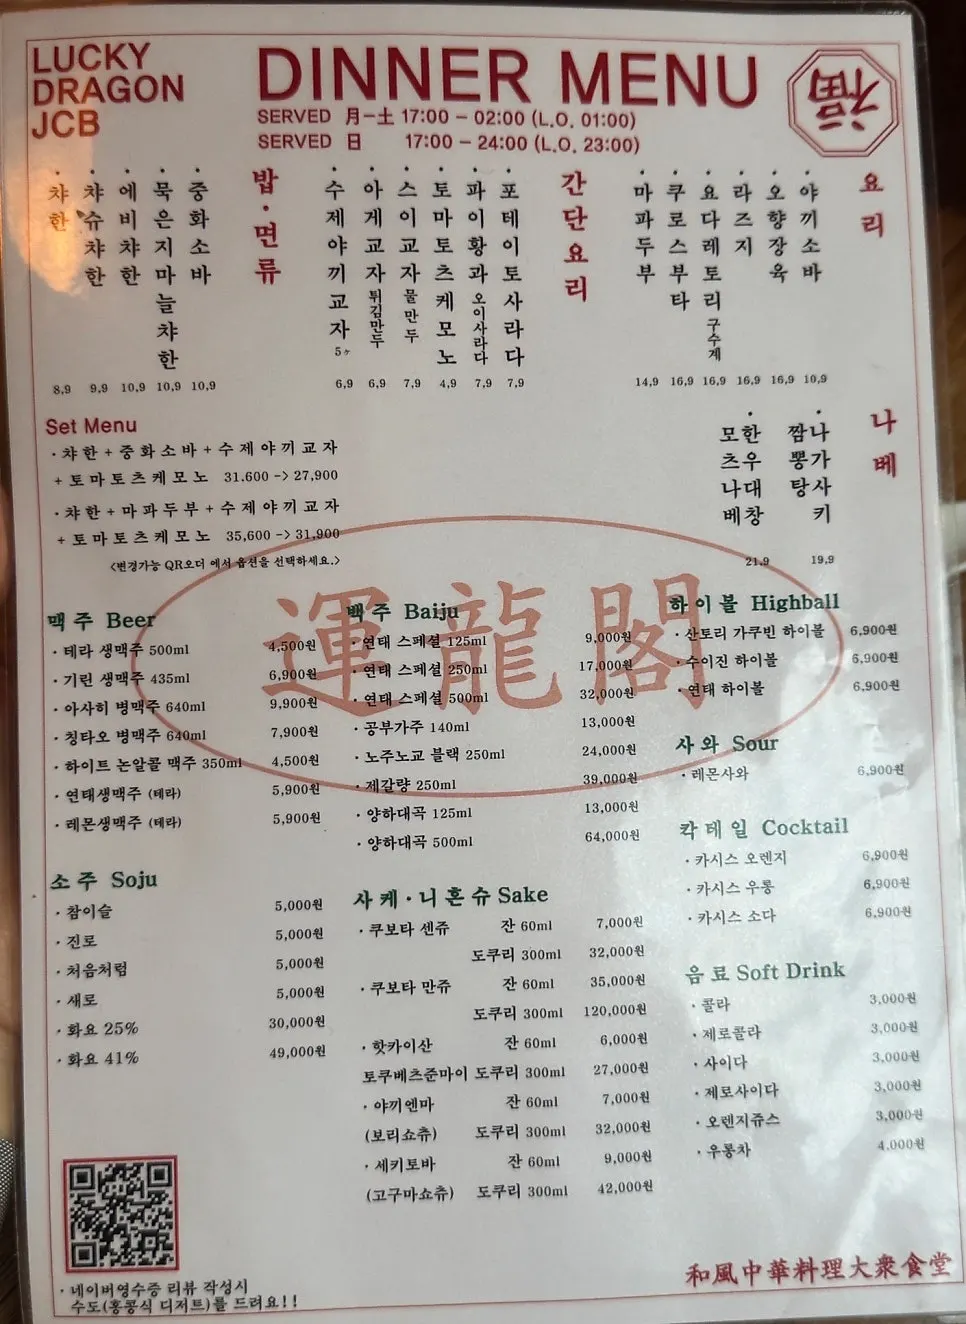 LUCKY
DRAGON
JCB
DINNER MENU
SERVED 月-土 17:00 - 02:00 (L.O. 01:00)
SERVED 日 17:00 - 24:00 (L.O. 23:00)
福
요리
· 야끼소바 10,9
· 오향장육 16,9
· 라즈지 16,9
· 요다레토리 구수계 16,9
· 쿠로스부타 16,9
· 마파두부 14,9
간단요리
· 포테이토사라다 7,9
· 파이황과 오이사라다 7,9
· 토마토츠케모노 4,9
· 스이교자 물만두 7,9
· 아게교자 튀김만두 6,9
· 수제야끼교자 5ヶ 6,9
밥·면류
· 중화소바 10,9
· 묵은지마늘챠한 10,9
· 에비챠한 10,9
· 챠슈챠한 9,9
· 챠한 8,9
나베
· 나가사키
짬뽕탕 19,9
· 한우대창
모츠나베 21,9
Set Menu
· 챠한 + 중화소바 + 수제야끼교자
+ 토마토츠케모노 31.600 -> 27,900
· 챠한 + 마파두부 + 수제야끼교자
+ 토마토츠케모노 35,600 -> 31,900
<변경가능 QR오더 에서 옵션을 선택하세요.>
運龍閣
맥주 Beer
· 테라 생맥주 500ml 4,500원
· 기린 생맥주 435ml 6,900원
· 아사히 병맥주 640ml 9,900원
· 칭타오 병맥주 640ml 7,900원
· 하이트 논알콜 맥주 350ml 4,500원
· 연태생맥주 (테라) 5,900원
· 레몬생맥주 (테라) 5,900원
소주 Soju
· 참이슬 5,000원
· 진로 5,000원
· 처음처럼 5,000원
· 새로 5,000원
· 화요 25% 30,000원
· 화요 41% 49,000원
백주 Baiju
· 연태 스페셜 125ml 9,000원
· 연태 스페셜 250ml 17,000원
· 연태 스페셜 500ml 32,000원
· 공부가주 140ml 13,000원
· 노주노교 블랙 250ml 24,000원
· 제갈량 250ml 39,000원
· 양하대곡 125ml 13,000원
· 양하대곡 500ml 64,000원
사케·니혼슈 Sake
· 쿠보타 센쥬 잔 60ml 7,000원
도쿠리 300ml 32,000원
· 쿠보타 만쥬 잔 60ml 35,000원
도쿠리 300ml 120,000원
· 핫카이산 잔 60ml 6,000원
토쿠베츠준마이 도쿠리 300ml 27,000원
· 야끼엔마 잔 60ml 7,000원
(보리쇼츄) 도쿠리 300ml 32,000원
· 세키토바 잔 60ml 9,000원
(고구마쇼츄) 도쿠리 300ml 42,000원
하이볼 Highball
· 산토리 가쿠빈 하이볼 6,900원
· 수이진 하이볼 6,900원
· 연태 하이볼 6,900원
사와 Sour
· 레몬사와 6,900원
칵테일 Cocktail
· 카시스 오렌지 6,900원
· 카시스 우롱 6,900원
· 카시스 소다 6,900원
음료 Soft Drink
· 콜라 3,000원
· 제로콜라 3,000원
· 사이다 3,000원
· 제로사이다 3,000원
· 오렌지쥬스 3,000원
· 우롱차 4.000원
· 네이버영수증 리뷰 작성시
수도(홍콩식 디저트)를 드려요!!
和風中華料理大衆食堂